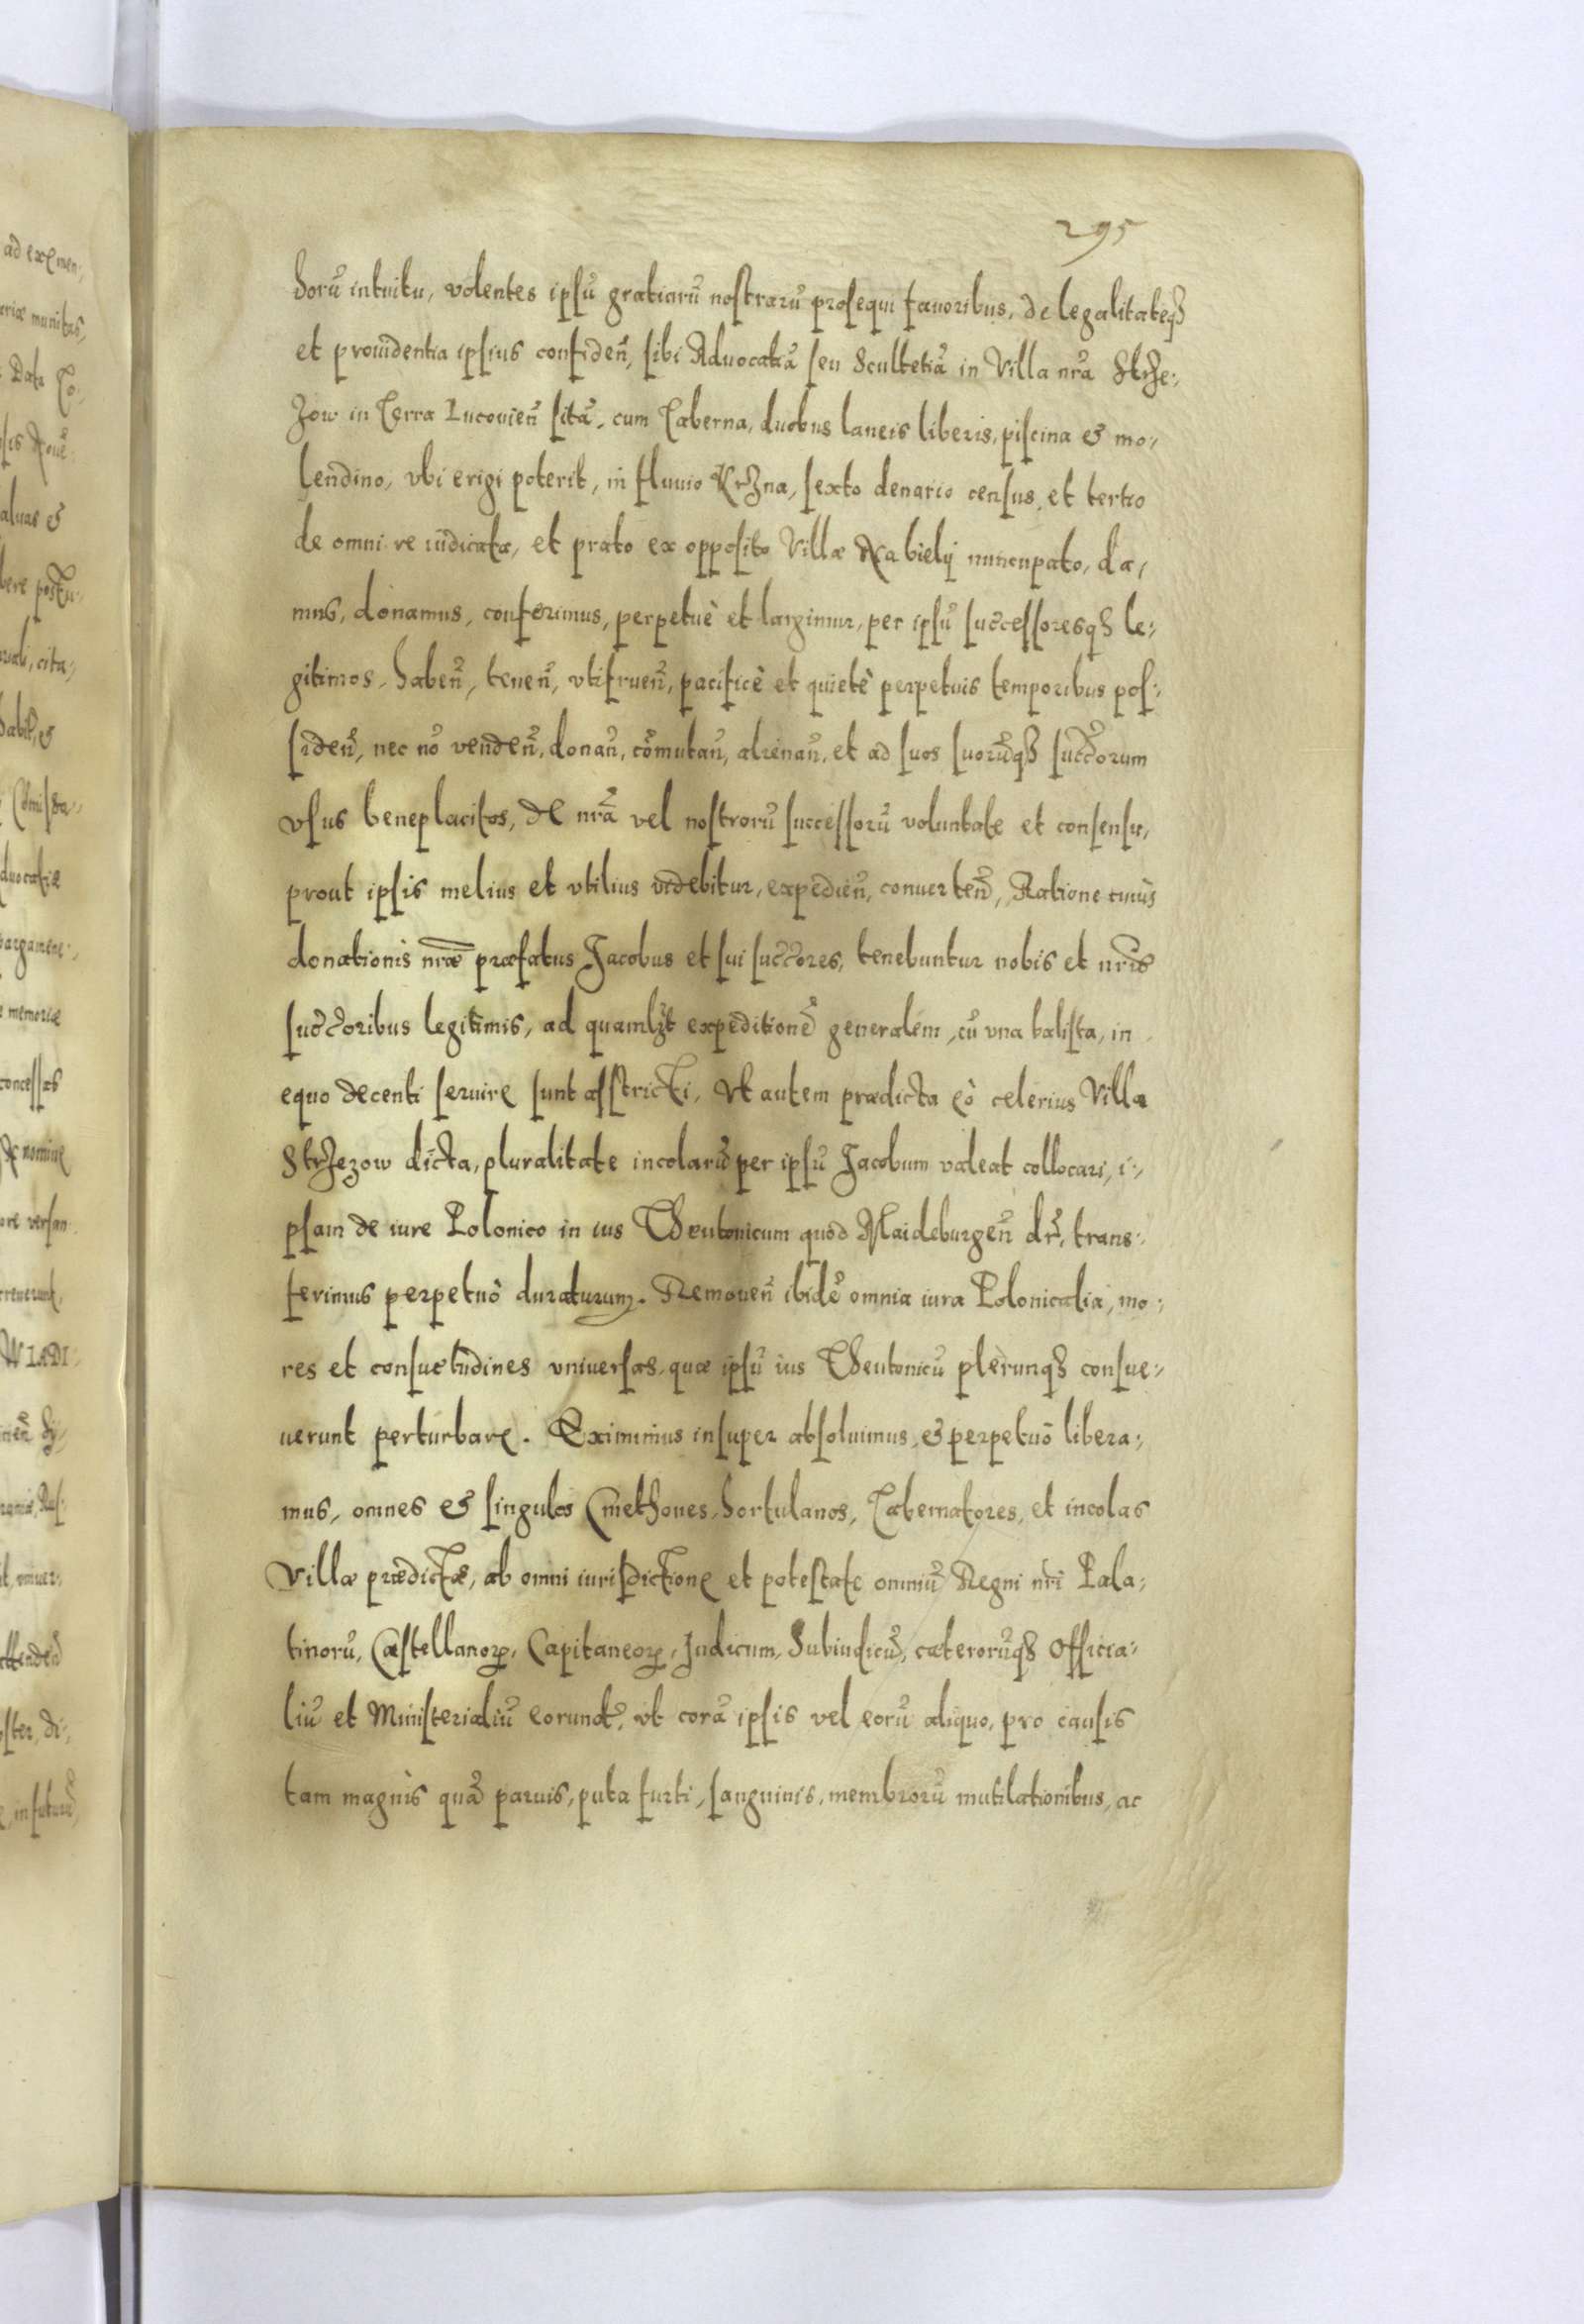 295
horũ intuitu, volentes ipsũ gratiarũ nostrarũ prosequi fauoribus, de legalitateqȝ
et prouidentia ipsius confideñ, sibi Aduocatiã seu Scultetiã in Villa nrã Strze:
zow in Terra Lucouieñ sitã, cum Taberna, duobus laneis liberis, piscina & mo,
lendino, vbi erigi poterit, in fluuio Krzna, sexto denario census, et tertio
de omni re iudicata, et prato ex opposito Villæ Na bielij nuncupato, da,
mus, donamus, conferimus, perpetuè et largimur, per ipsũ successoresqȝ le:
gitimos, habeñ, teneñ, vtifrueñ, pacificè et quietè perpetuis temporibus pos:
sideñ, nec nõ vendeñ, donañ, cõmutañ, alienañ, et ad suos suorũqȝ succorum
vsus beneplacitos, de nrã vel nostrorũ successorũ voluntate et consensu,
prout ipsis melius et vtilius videbitur, expedieñ, conuerteñ, Ratione cuiùs
donationis nræ præfatus Jacobus et sui succores, tenebuntur nobis et nris
succoribus legitimis, ad quamlȝt expeditionẽ generalem, cũ vna balista, in
equo decenti seruire sunt astricti, Vt autem prædicta eò celerius Villa
Strzezow dicta, pluralitate incolarũ per ipsũ Jacobum valeat collocari, i:
psam de iure Polonico in ius Theutonicum quod Maideburgeñ dr̃, trans:
ferimus perpetuò duraturum. Remoueñ ibidẽ omnia iura Polonicalia, mo:
res et consuetudines vniuersas, quæ ipsũ ius Theutonicũ plerunqȝ consue:
uerunt perturbare. Eximimus insuper absoluimus, & perpetuò libera:
mus, omnes & singulos Cmethones, hortulanos, Tabernatores, et incolas
Villæ prædictæ, ab omni iurisdictione et potestate omniũ Regni nrĩ Pala:
tinorũ, Castellanorꝝ, Capitaneorꝝ, Judicum, Subiudicũ, cæterorũqȝ Officia:
liũ et Ministerialiũ eorundẽ, vt corã ipsis vel eorũ aliquo, pro causis
tam magnis quã paruis, puta furti, sanguinis, membrorũ mutilationibus, ac